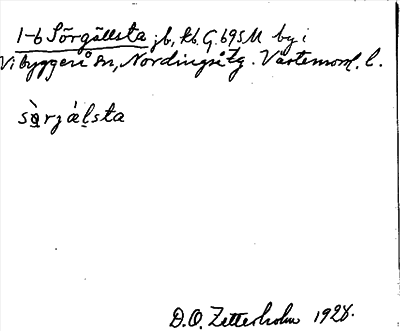 1-6 Sörgällsta jb, kb. G. 695M by i
Vibyggerå sn, Nordingrå tg. Västernorrl. l.
sö̀rjálsta
D.O. Zetterholm 1928.